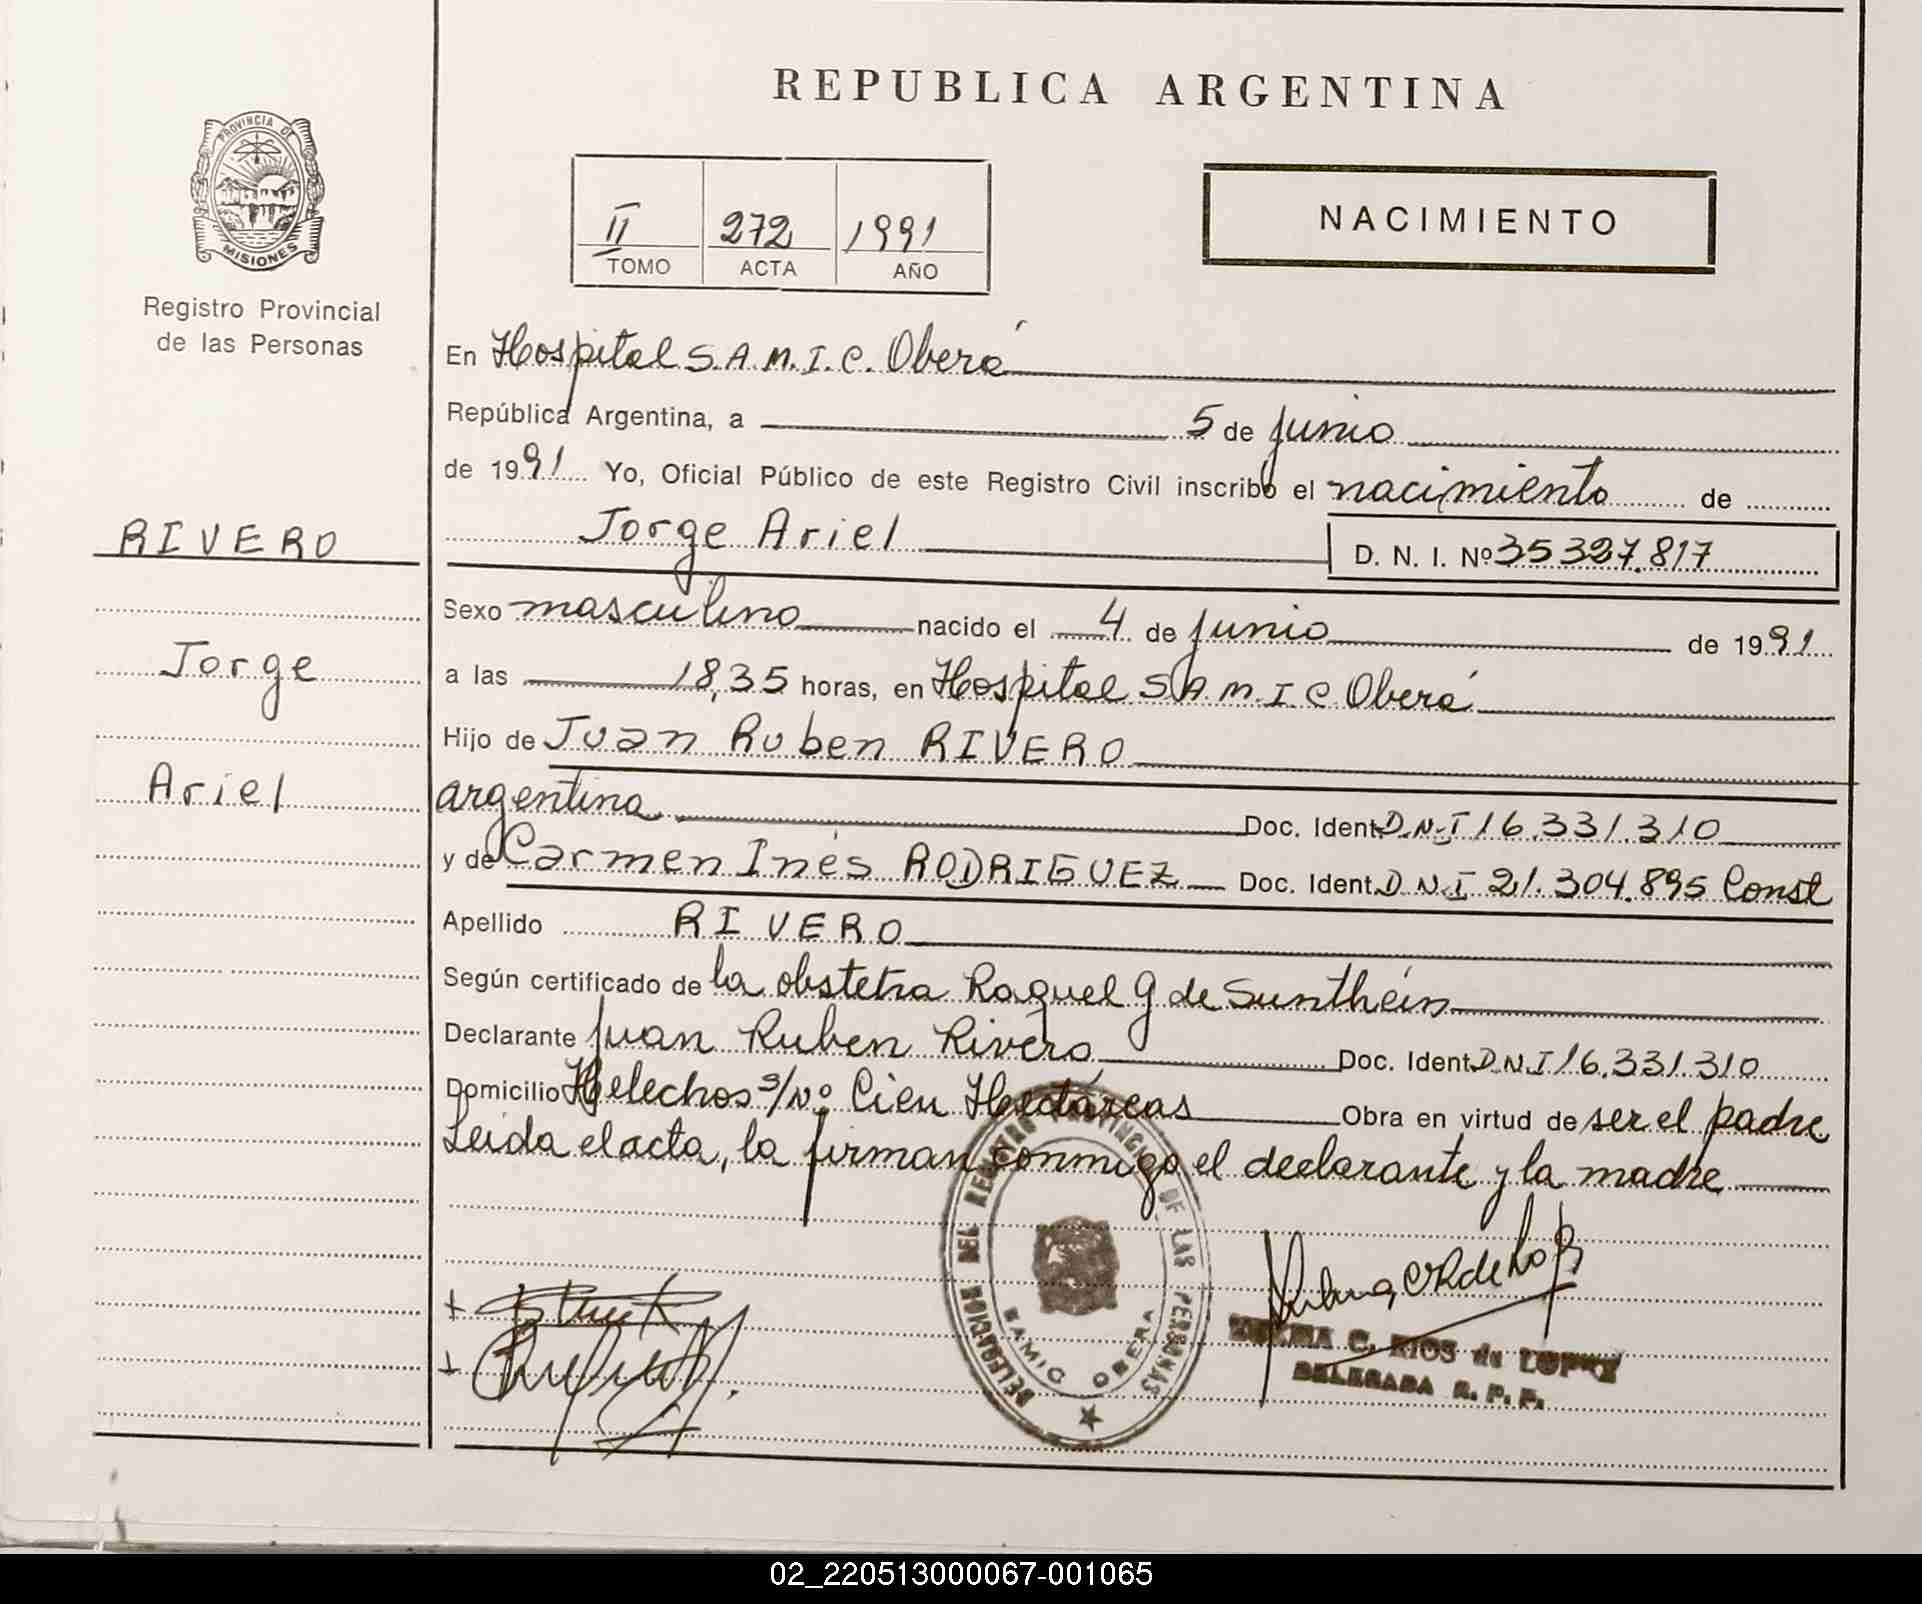 REPUBLICA ARGENTINA
PROVINCIA DE
MISIONES
Registro Provincial
de las Personas
II 272 1991
TOMO ACTA AÑO
NACIMIENTO
En Hospital S.A.M.I.C. Oberá
República Argentina, a 5 de junio
de 1991 Yo, Oficial Público de este Registro Civil inscribo el nacimiento de
RIVERO
Jorge Ariel
D. N. I. Nº 35327.817
Sexo masculino nacido el 4 de junio de 1991
Jorge
a las 18,35 horas, en Hospital S.A.M.I.C Oberá
Hijo de Juan Ruben RIVERO
Ariel
argentina Doc. Ident. D.N.I 16.331.310
y de Carmen Inés RODRIGUEZ Doc. Ident. D.N.I 21.304.895 Const
Apellido RIVERO
Según certificado de la obstetra Raquel G de Sunthein
Declarante Juan Ruben Rivero Doc. Ident. D.N.I 16.331.310
Domicilio Helechos s/Nº Cien Hectáreas Obra en virtud de ser el padre
Leida el acta, la firman conmigo el declarante y la madre
DELEGACION DEL REGISTRO PROVINCIAL DE LAS PERSONAS
SAMIC OBERA
C. RIOS de LOPEZ
DELEGADA R. P. P.
02_220513000067-001065